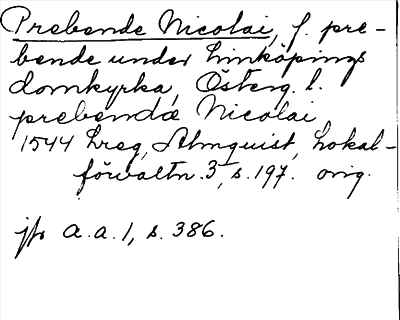 Prebende Nicolai, f. pre-
bende under Linköpings
domkyrka, Österg. l.
prebendæ Nicolai
1544 Lreg, Almquist, Lokal-
förvaltn. 3, s. 197. orig.
jfr a.a. 1, s. 386.